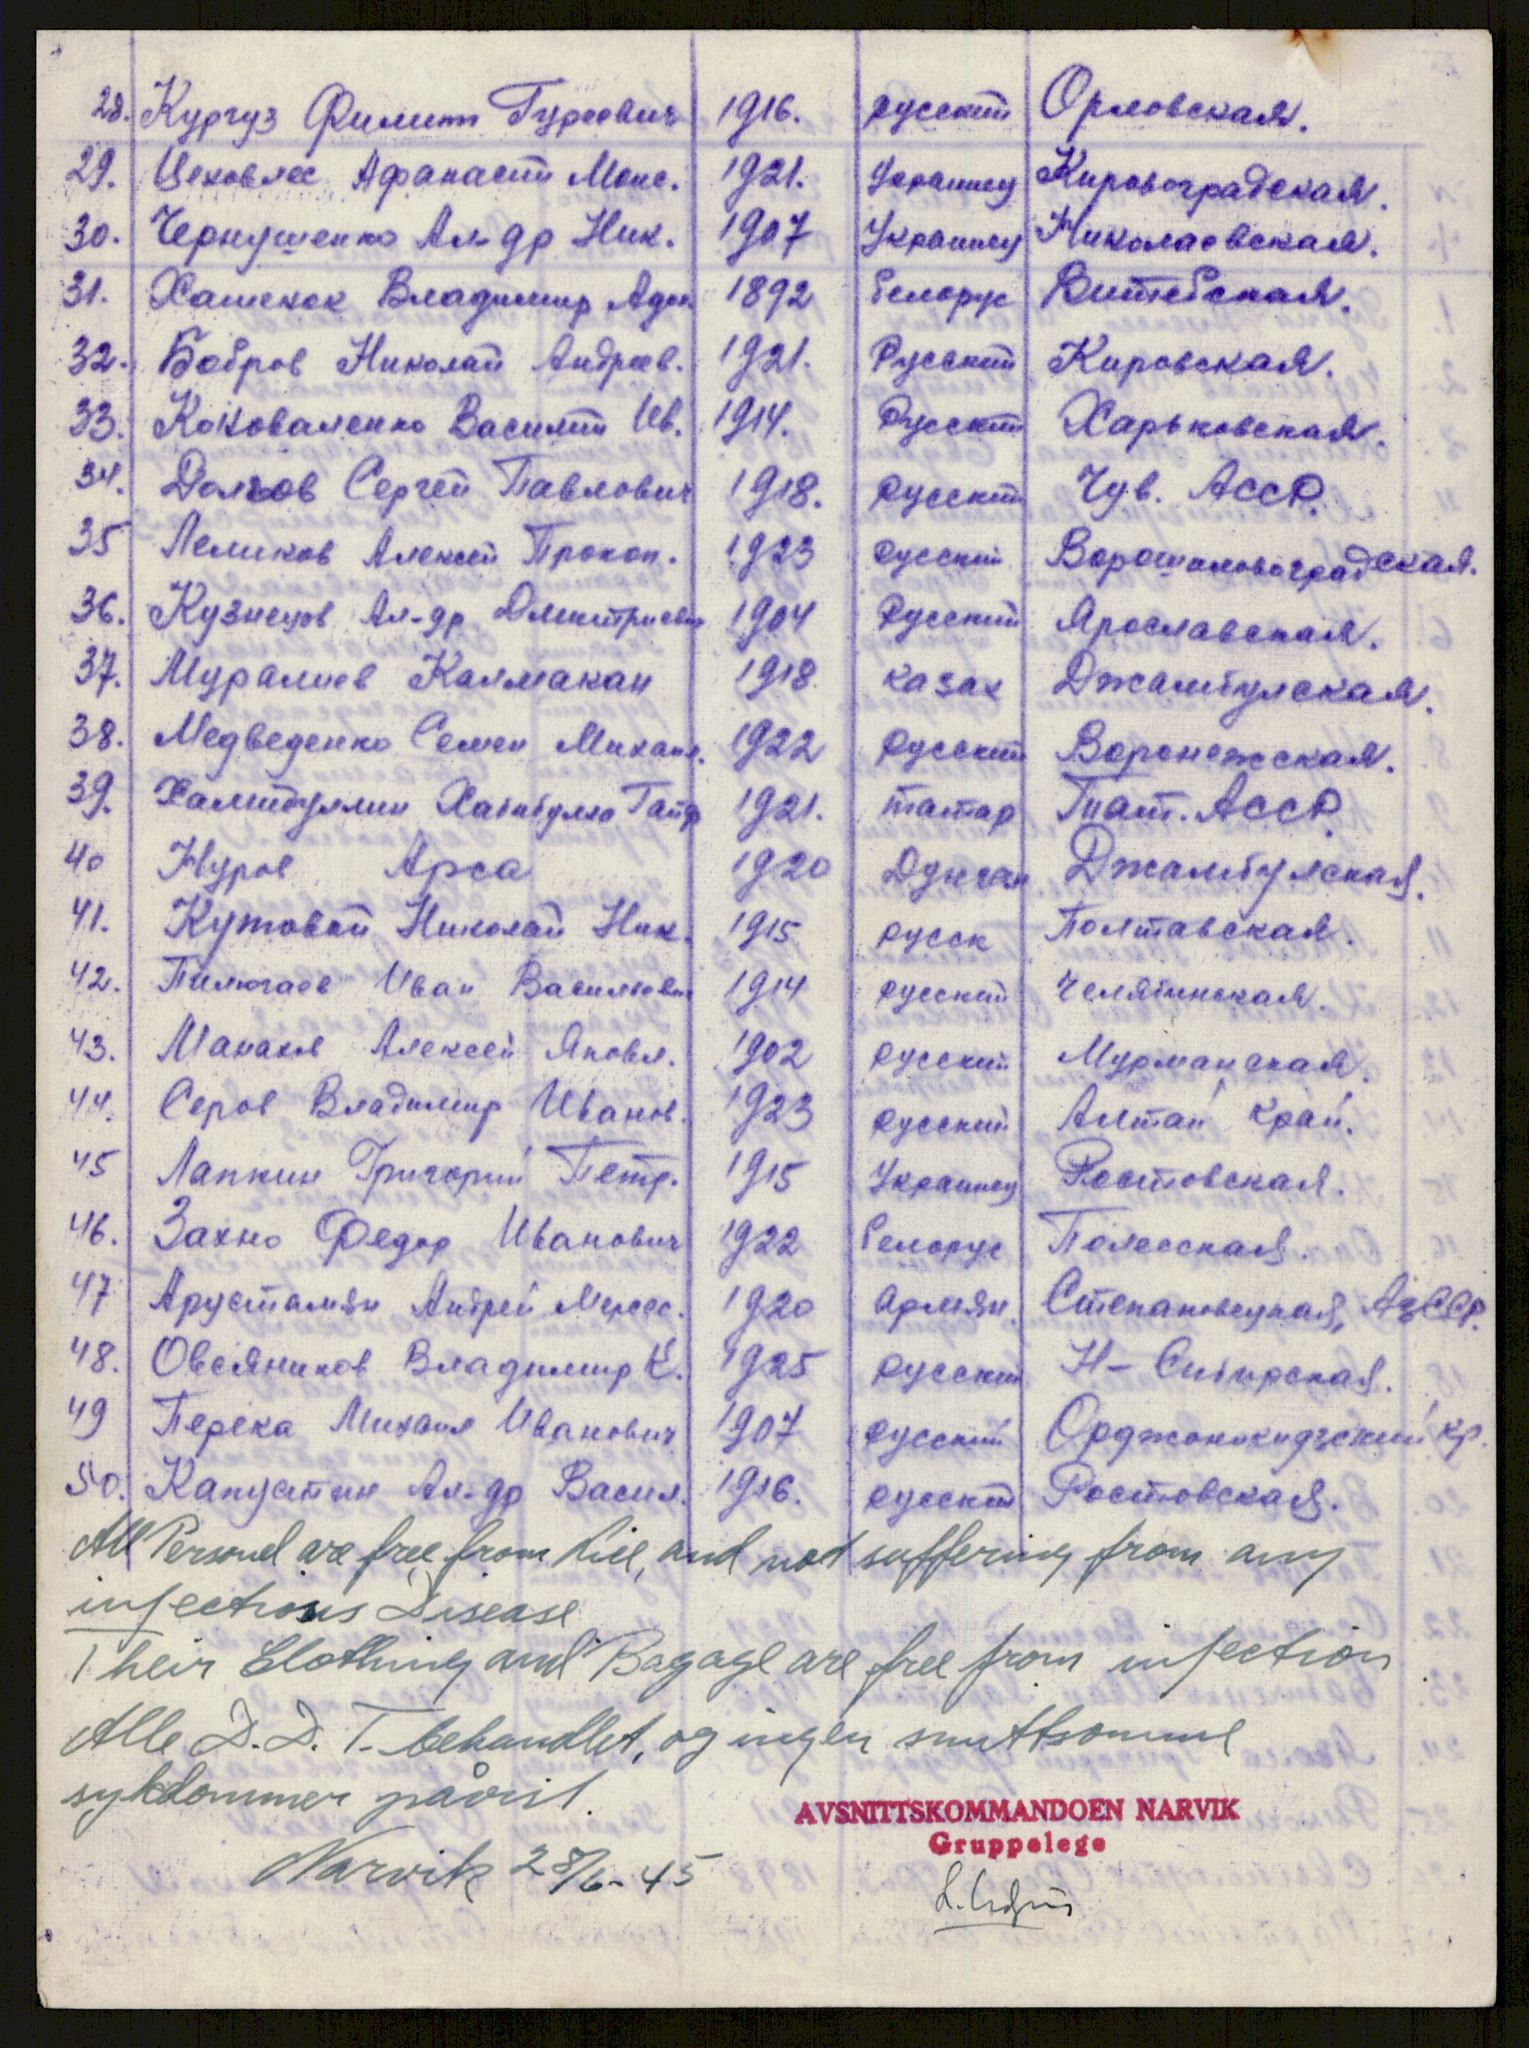 28. Кургуз Филипп Гурсович 1916. русский Орловская.
29. Цековлес Афанасий Макс. 1921. Украинец Кировоградская.
30. Чернушенко Ал-др Ник. 1907 Украинец Николаевская.
31. Хашенок Владимир Адол 1892 белорус Витебская.
32. Бобров Николай Андреев. 1921. Русский Кировская.
33. Коноваленко Василий Ив. 1914. Русский Харьковская.
34. Долгов Сергей Павлович 1918. русский Чув. АССР.
35 Лемиков Алексей Прокоп. 1923 русский Ворошиловоградская.
36. Кузнецов Ал-др Дмитриевич 1904 Русский Ярославская.
37. Муралиев Калмакан 1918. казах Джамбулская.
38. Медведенко Семен Михаил. 1922 русский Воронежская.
39. Хамидуллин Хабибулла Гайф 1921. татар Тат. АССР.
40 Нуров Арса 1920 Дунган Джамбулская.
41. Кутовой Николай Ник. 1915 русск Полтавская.
42. Пилюгаев Иван Васильевич 1914 русский Челябинская.
43. Манахов Алексей Яковл. 1902 русский Мурманская.
44. Серов Владимир Иванов. 1923 русский Алтай край.
45 Лапкин Григорий Петр. 1915 Украинец Ростовская.
46. Захно Федор Иванович 1922 белорус Полесская.
47 Арустамян Андрей Мерсес. 1920 армян. АзССР.
48. Овсяников Владимир К. 1925 русский Н-Сибирская.
49 Перека Михаил Иванович 1907 русский Орджоникидзский кр.
50. Капустин Ал-др Васил. 1916. русский Ростовская.
All Personel are free from Lice, and not suffering from any
infections Disease
Their Clothing and Bagage are free from infection
Alle D.D.T. behandlet, og ingen smittsomme
sykdommer påvist.
AVSNITTSKOMMANDOEN NARVIK
Gruppelege
Narvik 28/6-45